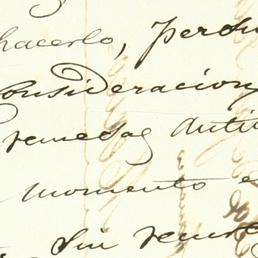 hacerlo, persu
Consideracion
remesas anti
momento e
Sin remes